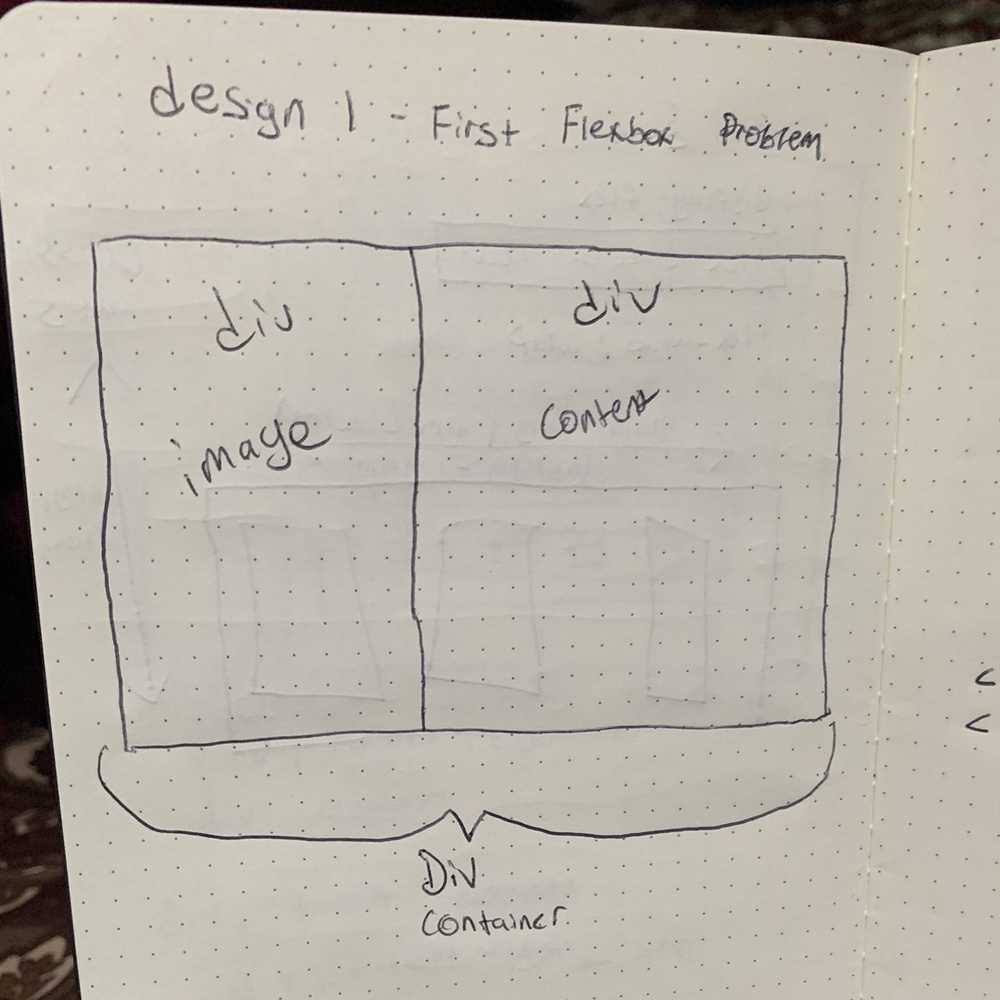 design 1 - First Flexbox Problem
div
image
div
content
Div
container
<
<